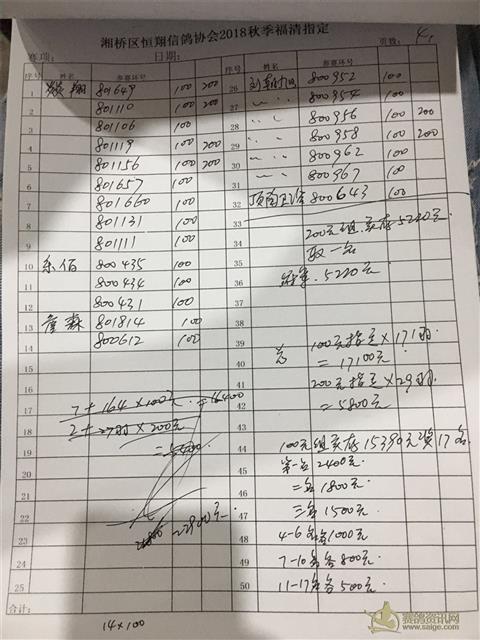 湘桥区恒翔信鸽协会2018秋季福清指定
赛项: 日期: 页数: 4
序号 姓名 参赛环号 序号 姓名 参赛环号
1 翔 801649 100 200
2 801110 100 200
3 801106 100
4 801119 100 200
5 801156 100 200
6 801657 100
7 801660 100
8 801131 100
9 801111 100
10 乐佰 800435 100
11 800434 100
12 800431 100
13 詹森 801814 100
14 800612 100
15
16
17 7+164×100元=16400
18 2+27羽×200元
19 =5400
20
21
22
23 22900元
24
25
合计:
14×100
26 800952 100
27 〃 〃 800954 100
28 〃 〃 800956 100 200
29 〃 〃 800958 100 200
30 〃 〃 800962 100
31 〃 〃 800967 100
32 800643 100
33
34 200元组,实存5220元
35 取一名
36 冠军.5220元
37
38
39 总 100元指定×171羽.
40 =17100元
41 200元指定×29羽.
42 =5800元
43
44 100元组实存15390元奖17名
45 第一名2400元.
46 二名1800元.
47 三名1500元.
48 4-6名各1000元
49 7-10名各800元.
50 11-17名各500元.
赛鸽资讯网
www.saige.com